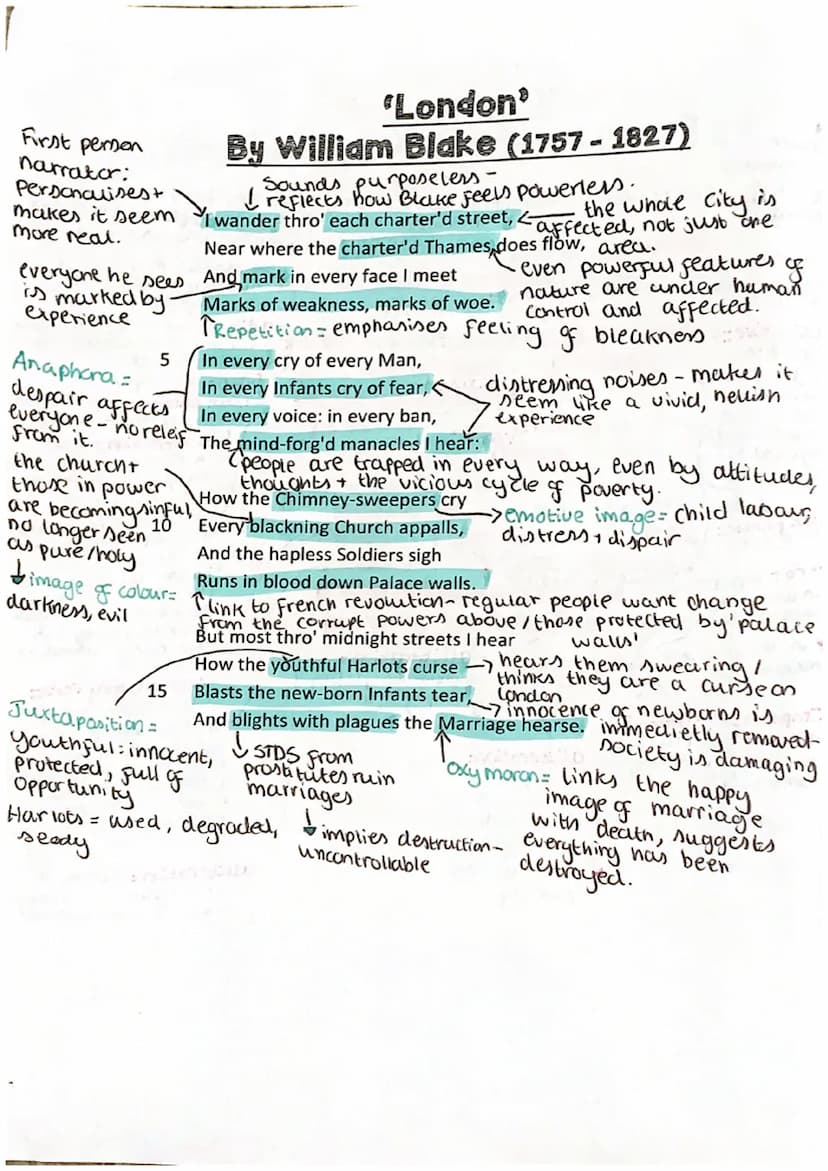 'London'
By William Blake (1757 - 1827)
First person
narrator:
Personalises +
makes it seem
more real.
Sounds purposeless -
reflects how Blake feels powerless.
I wander thro' each charter'd street,
the whole city is
affected, not just one
area.
Near where the charter'd Thames does flow,
even powerful features of
nature are under human
control and affected.
And mark in every face I meet
everyone he sees
is marked by
experience
Marks of weakness, marks of woe.
Repetition = emphasises feeling of bleakness
5 In every cry of every Man,
Anaphora =
despair affects
everyone - no releif
from it.
In every Infants cry of fear,
distressing noises - makes it
seem like a vivid, hellish
experience
In every voice: in every ban,
The mind-forg'd manacles I hear:
people are trapped in every way, even by attitudes,
thoughts + the vicious cycle of poverty.
the church +
those in power
are becoming sinful,
no longer seen
as pure/holy
How the Chimney-sweepers cry
emotive image = child labour,
distress + dispair
10 Every blackning Church appalls,
And the hapless Soldiers sigh
image of colour =
darkness, evil
Runs in blood down Palace walls.
link to French revolution - regular people want change
from the corrupt powers above/those protected by 'palace
walls'
But most thro' midnight streets I hear
How the youthful Harlots curse
hears them swearing /
thinks they are a curse on
London
15 Blasts the new-born Infants tear,
innocence of newborns is
immedietly removed -
society is damaging
And blights with plagues the Marriage hearse.
Juxtaposition =
Youthful: innocent,
protected, full of
opportunity
Harlots = used, degraded,
seedy
STDS from
prostitutes ruin
marriages
implies destruction -
uncontrollable
Oxymoron = links the happy
image of marriage
with death, suggests
everything has been
destroyed.